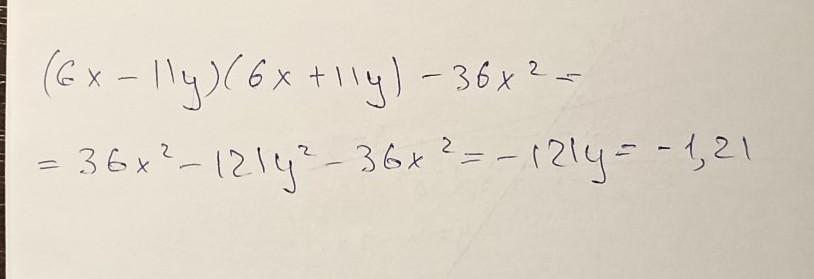 (6x - 11y)(6x + 11y) - 36x² =
= 36x² - 121y² - 36x² = - 121y = - 1,21